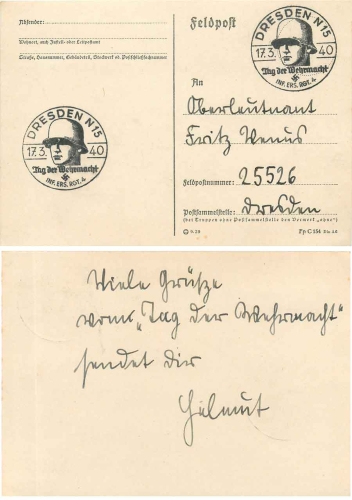 Absender:
Wohnort, auch Zustell- oder Leitpostamt
Straße, Hausnummer, Gebäudeteil, Stockwerk od. Postschließfachnummer
DRESDEN N15
17.3. 40
Tag der Wehrmacht
INF. ERS. RGT. 4
Feldpost
DRESDEN N15
17.3. 40
Tag der Wehrmacht
INF. ERS. RGT. 4
An
Oberleutnant
Fritz Venus
Feldpostnummer: 25526
Postsammelstelle: Dresden
(bei Truppen ohne Postsammelstelle den Vermerk „ohne“)
Fp C 154 Din A 6
Viele Grüsze
vom „Tag der Wehrmacht“
sendet dir
Helmut